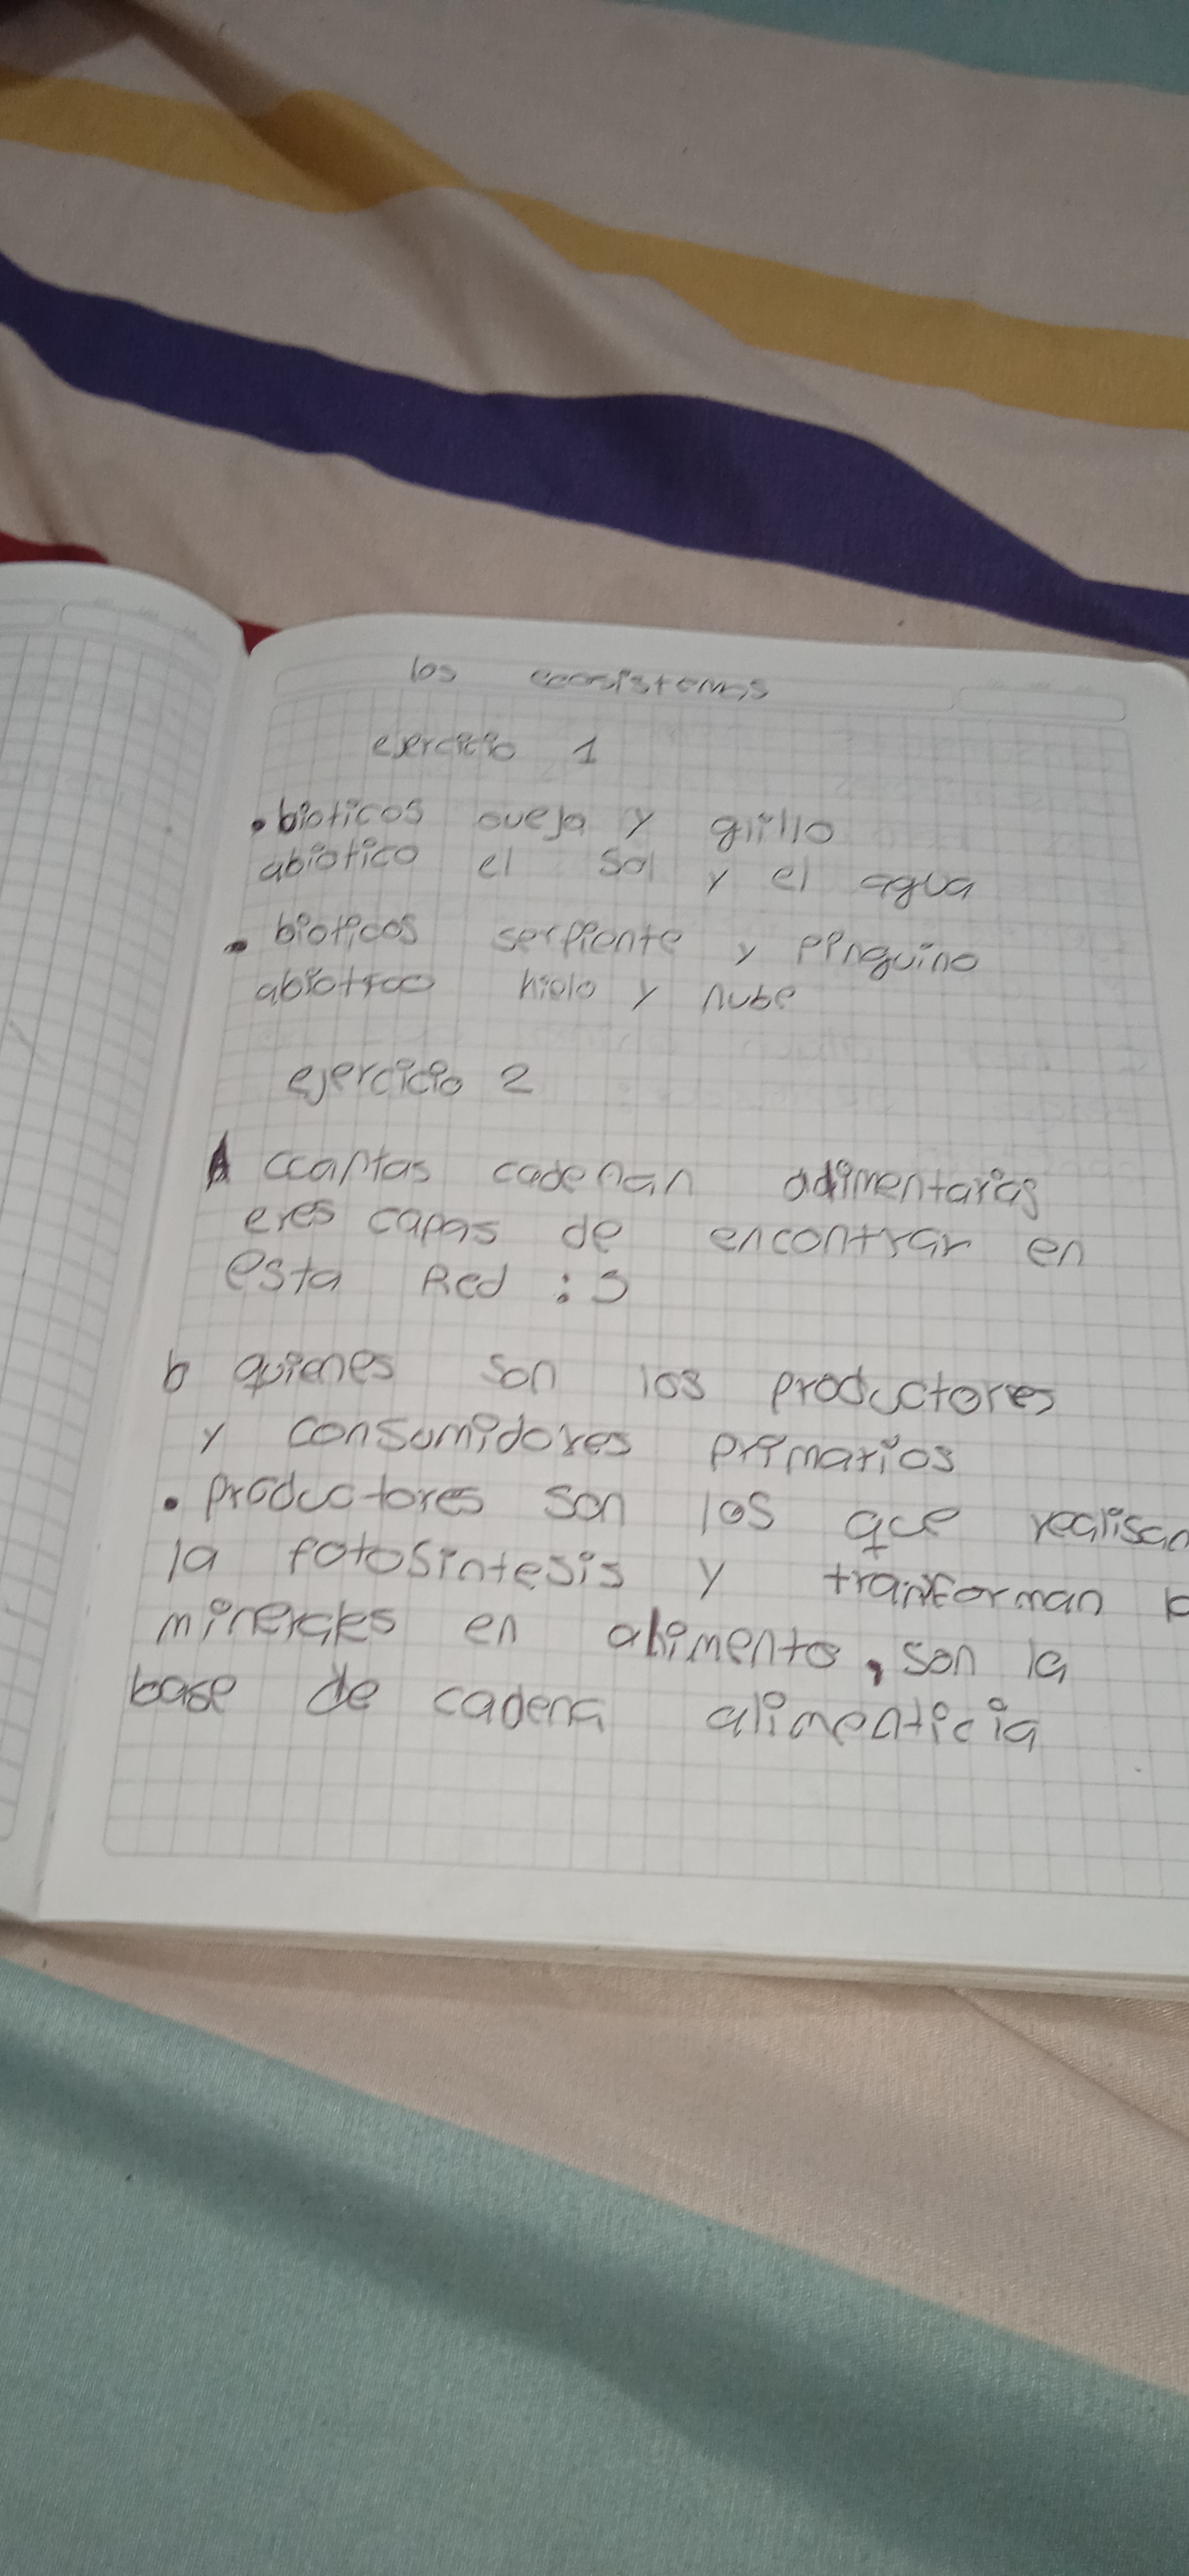 los ecosistemas
ejercicio 1
• bioticos oveja y grillo
abiotico el Sol y el agua
• bioticos serpiente y pinguino
abiotico hielo y nube
ejercicio 2
A ccantas cadenan adimentarias
eres capas de encontrar en
esta Red : 5
b quienes son los productores
y consumidores primarios
• productores son los que realisan
la fotosintesis y tranforman
minerales en alimento, son la
base de cadena alimenticia